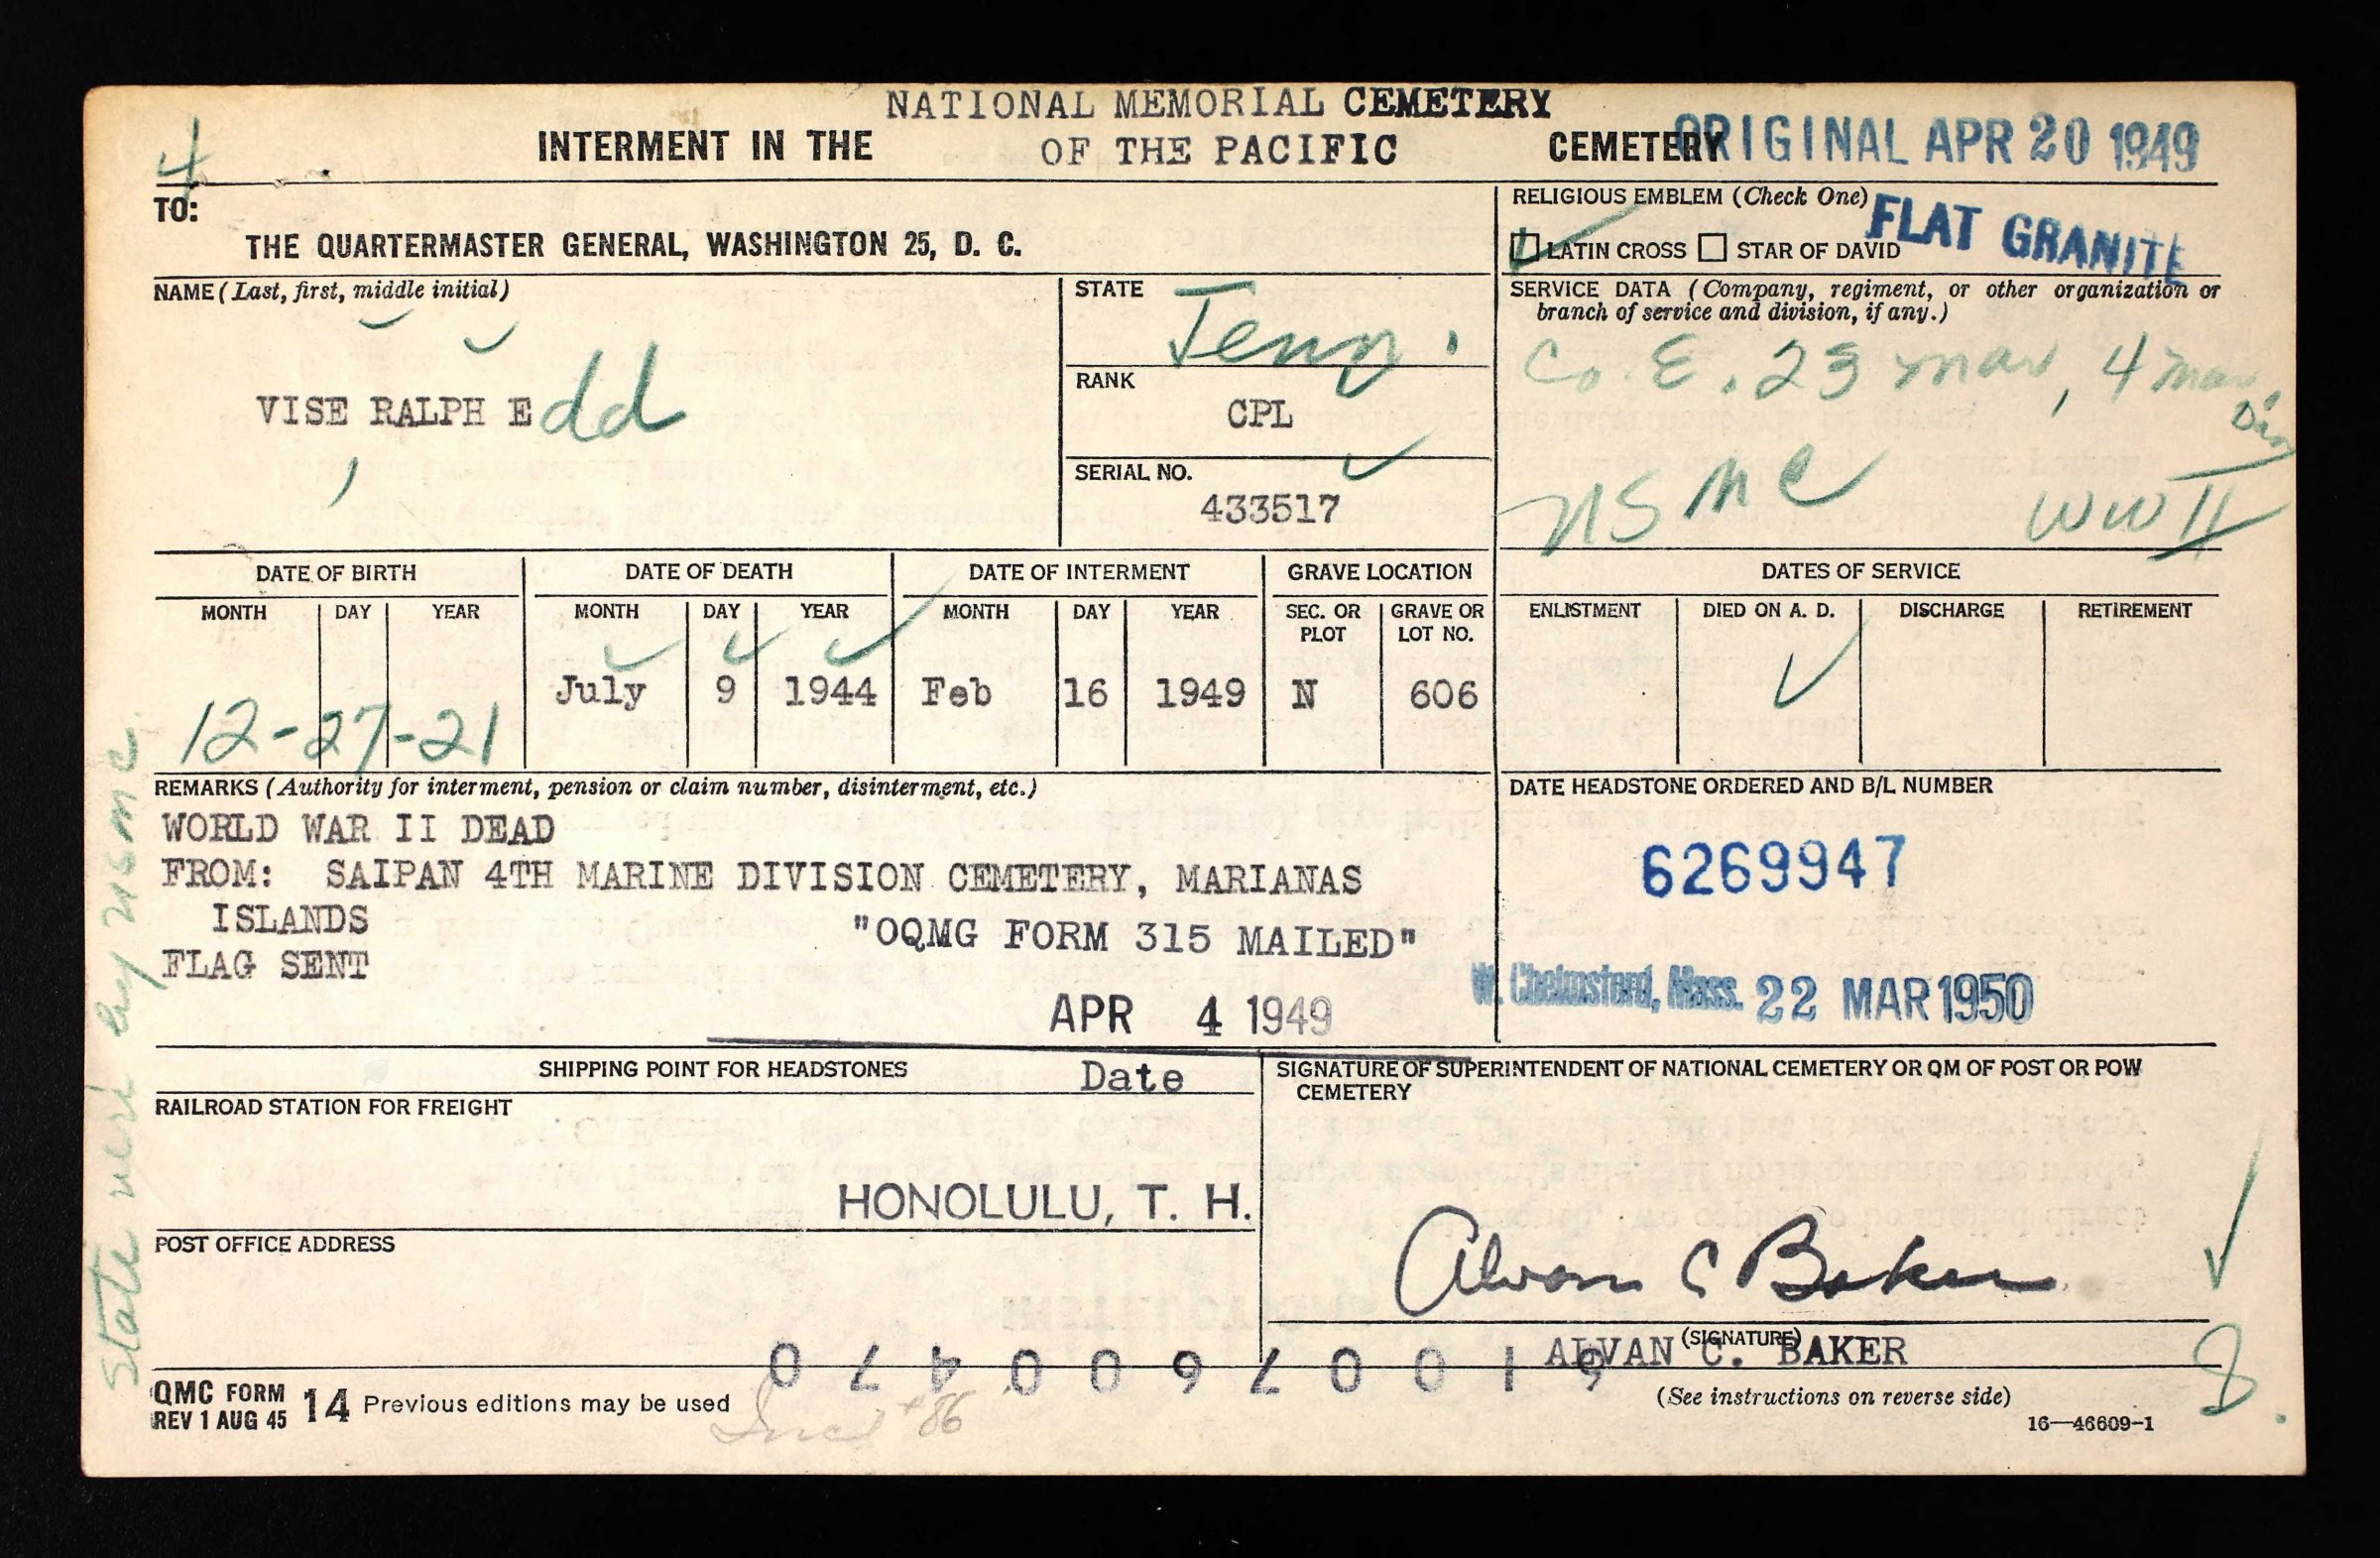 NATIONAL MEMORIAL CEMETERY
INTERMENT IN THE OF THE PACIFIC CEMETERY ORIGINAL APR 20 1949
4
TO:
THE QUARTERMASTER GENERAL, WASHINGTON 25, D. C.
RELIGIOUS EMBLEM (Check One)
FLAT GRANITE
LATIN CROSS STAR OF DAVID
NAME (Last, first, middle initial)
VISE RALPH Edd
,
STATE
Tenn.
RANK
CPL
SERIAL NO.
433517
SERVICE DATA (Company, regiment, or other organization or
branch of service and division, if any.)
Co. E. 23 mar, 4 mar
Div
USMC WW II
DATE OF BIRTH DATE OF DEATH DATE OF INTERMENT GRAVE LOCATION DATES OF SERVICE
MONTH DAY YEAR MONTH DAY YEAR MONTH DAY YEAR SEC. OR PLOT GRAVE OR LOT NO. ENLISTMENT DIED ON A. D. DISCHARGE RETIREMENT
12-27-21 July 9 1944 Feb 16 1949 N 606
REMARKS (Authority for interment, pension or claim number, disinterment, etc.)
WORLD WAR II DEAD
FROM: SAIPAN 4TH MARINE DIVISION CEMETERY, MARIANAS
ISLANDS
"OQMG FORM 315 MAILED"
FLAG SENT
APR 4 1949
Date
DATE HEADSTONE ORDERED AND B/L NUMBER
6269947
W. Chelmsford, Mass. 22 MAR 1950
SHIPPING POINT FOR HEADSTONES
RAILROAD STATION FOR FREIGHT
HONOLULU, T. H.
POST OFFICE ADDRESS
SIGNATURE OF SUPERINTENDENT OF NATIONAL CEMETERY OR QM OF POST OR POW
CEMETERY
Alvan C Baker
(SIGNATURE)
ALVAN C. BAKER
(See instructions on reverse side)
16—46609-1
8
State veri by usmc
QMC FORM 14 Previous editions may be used
REV 1 AUG 45